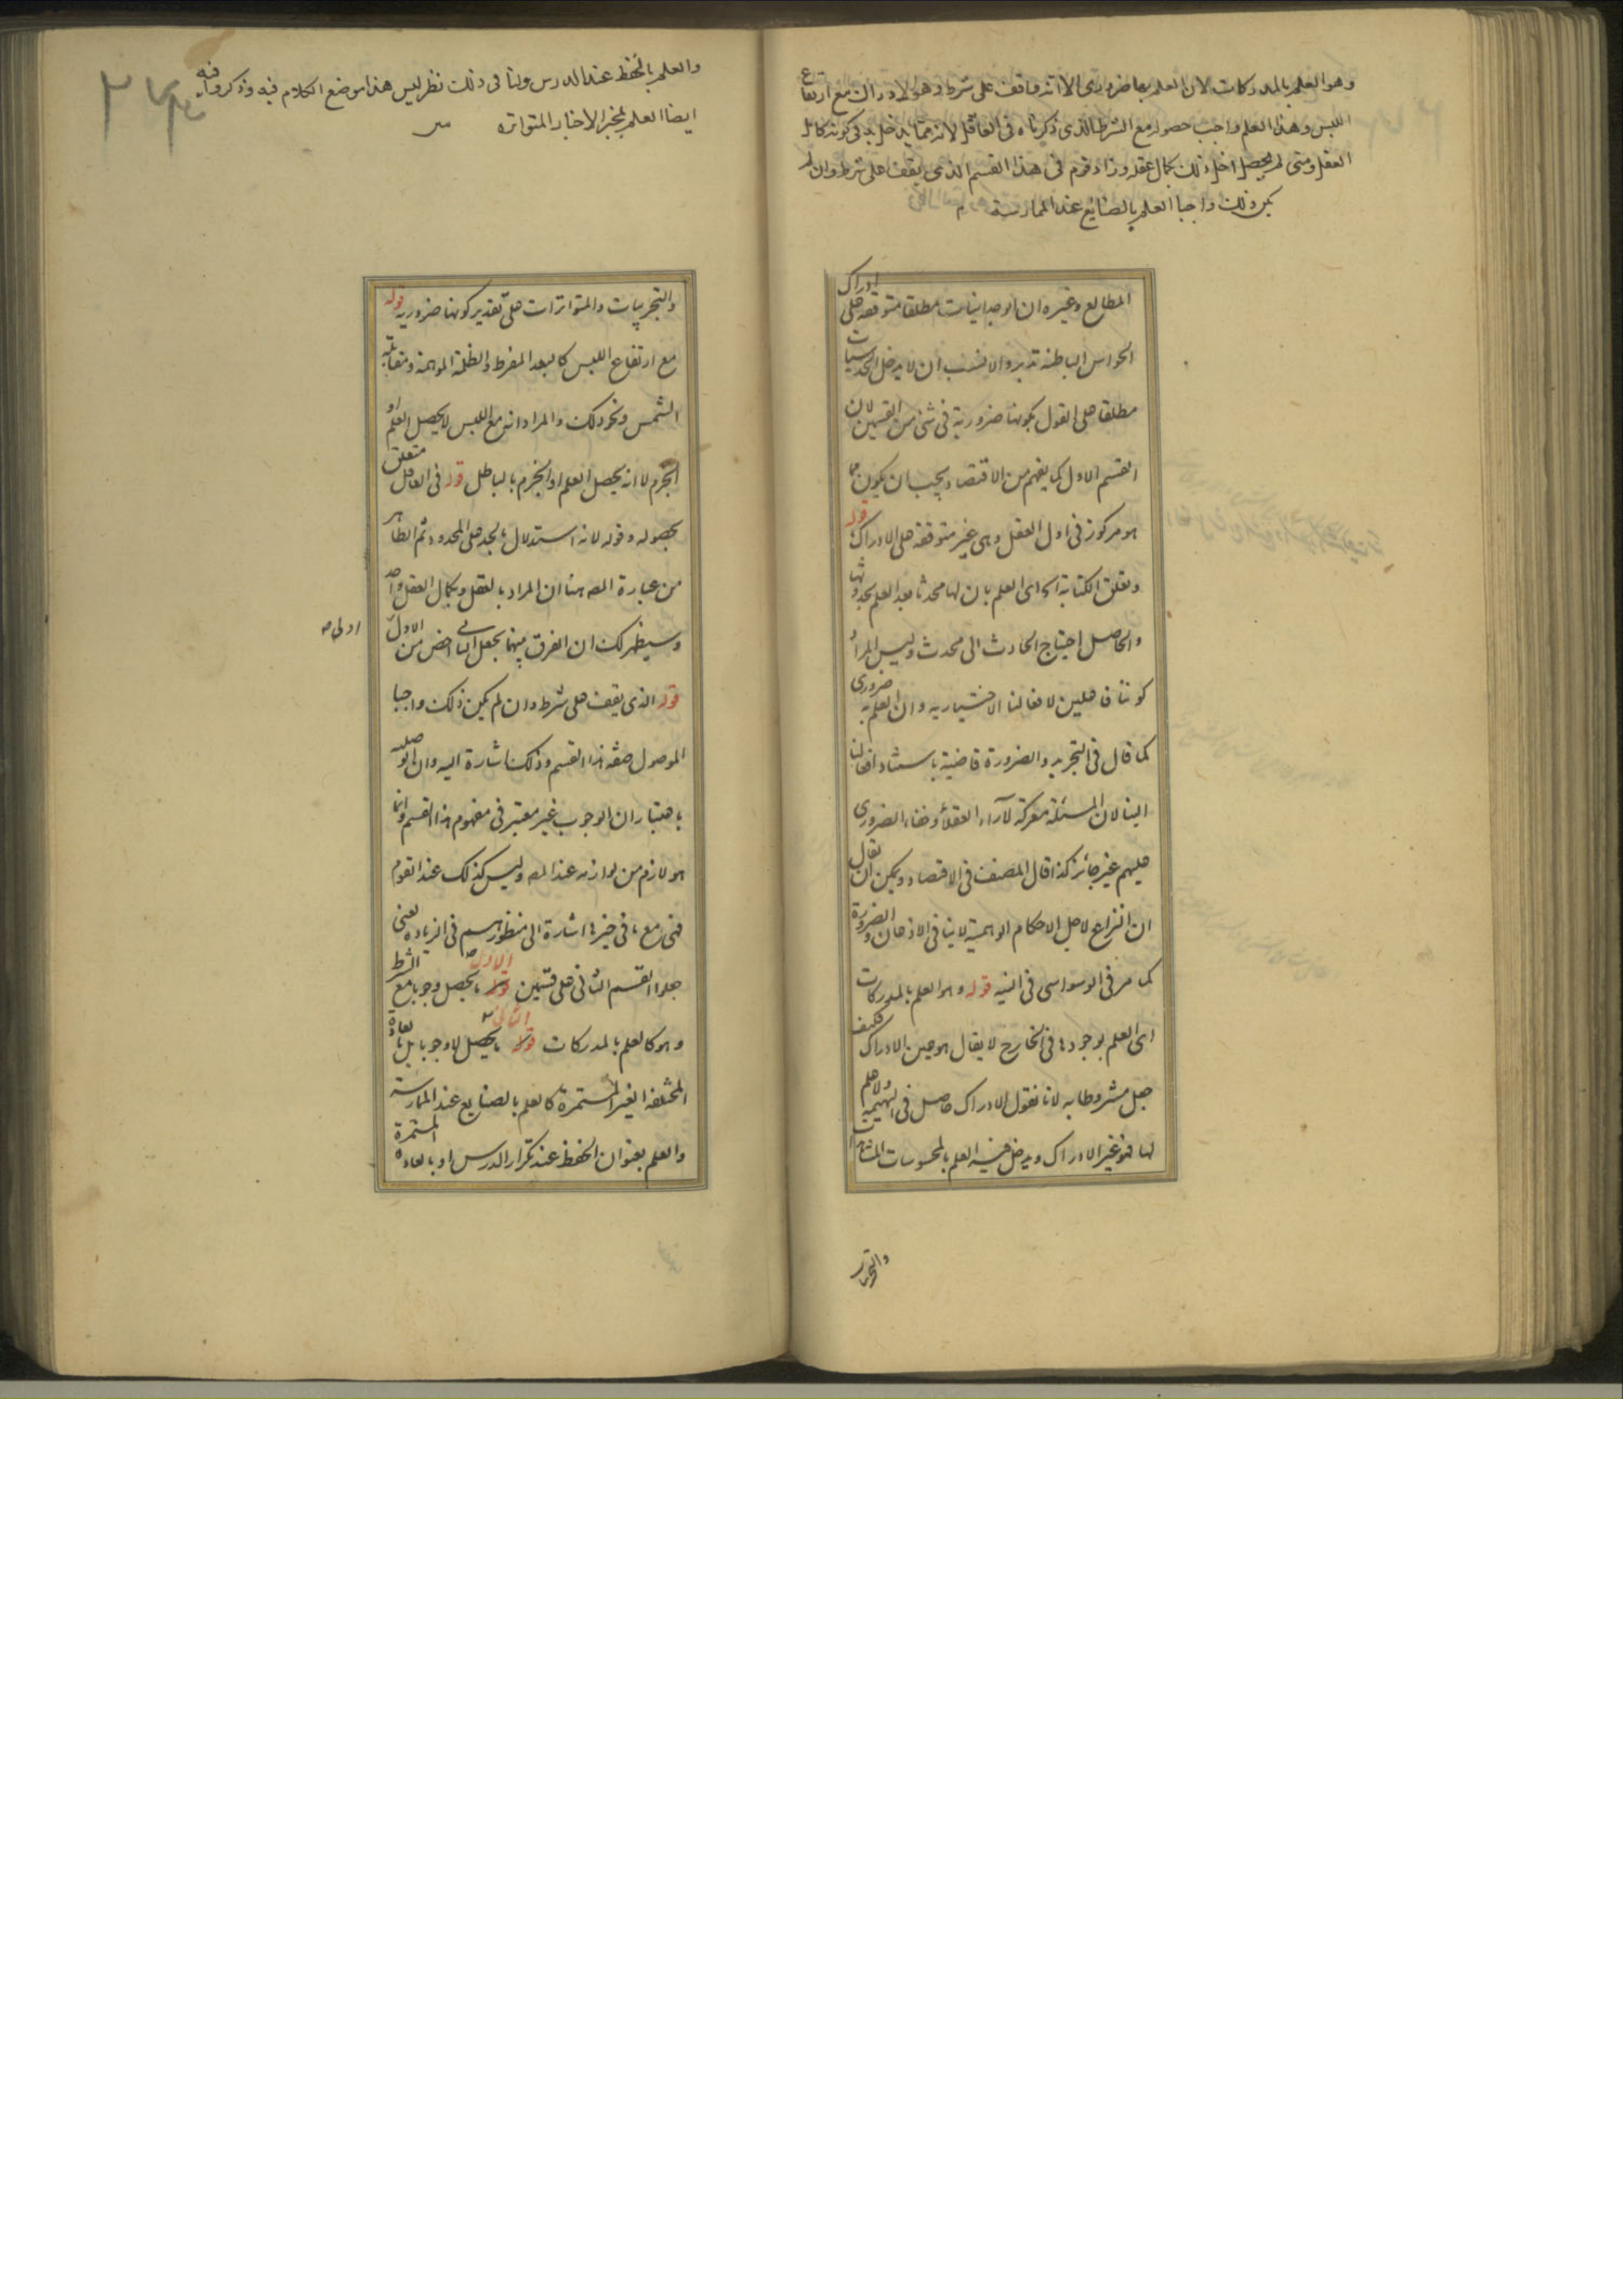 وهو العلم بالمدركات لان العلم بها ضروري الا انه واقف على شرط وهو الادراك مع ارتفاع
اللبس وهذا العلم واجب حصوله مع الشرط الذي ذكرناه في العاقل لانه مما يدخل به في كونه كامل
العقل ومتى لم يحصل اخل ذلك بكمال عقله وزاد قوم في هذا القسم الذي يقف على شرط وان لم
يكن ذلك واجبا العلم بالصنايع عند الممارسة
المطالع وغيره ان الوجدانيات مطلقا متوقفة على ادراك
الحواس الباطنة تدبر والانسب ان لا يدخل الحدسيات
مطلقا على القول بكونها ضرورية في شئ من القسمين لان
القسم الاول كما يفهم من الاقتصاد يجب ان يكون مما
هو مركوز في اول العقل وهي غير متوقفة على الادراك قوله
وتعلق الكتابة اه اى العلم بان لها محدثا بعد العلم بحدوثها
والحاصل احتياج الحادث الى محدث وليس المراد
كوننا فاعلين لافعالنا الاختيارية وان العلم به ضروري
كما قال في التجريد والضرورة قاضية باستناد افعالنا
الينا لان المسئلة معركة لآراء العقلاء وخفاء الضروري
عليهم غير جائز كذا قال المصنف في الاقتصاد ويمكن ان يقال
ان النزاع لاجل الاحكام الوهمية لا ينافي الاذعان والضرورة
كما مر في الوسواسي في النية قوله وهو العلم بالمدركات
اى العلم بوجودها في الخارج لا يقال هو عين الادراك فكيف
جعل مشروطا به لانا نقول الادراك حاصل في البهيمة ولا علم
لها فهو غير الادراك ويدخل فيه العلم بالمحسوسات
والتجربيات
والعلم بالحفظ عند الدرس ولنا في ذلك نظر ليس هذا موضع الكلام فيه وذكروا فيه
ايضا العلم بمخبر الاخبار المتواترة
والتجربيات والمتواترات على تقدير كونها ضرورية قوله
مع ارتفاع اللبس كالبعد المفرط والظلمة الموهمة ومقابلة
الشمس ونحو ذلك والمراد انه مع اللبس لا يحصل العلم او
الجزم لا انه يحصل العلم او الجزم بالباطل قوله في العاقل متعلق
بحصوله وقوله لانه استدلال بالحد على المحدود ثم الظاهر
من عبارة المص هنا ان المراد بالعقل وبكمال العقل واحد
وسيظهر لك ان الفرق بينهما بجعل الثاني اخص من الاول
اولى ص
قوله الذي يقف على شرط وان لم يكن ذلك واجبا
الموصول صفة هذا القسم وذلك اشارة اليه وان الوصلية
باعتبار ان الوجوب غير معتبر في مفهوم هذا القسم وانما
هو لازم من لوازمه عند المص وليس كذلك عند القوم
فهي مع ما في خبرها اشارة الى منظورهم في الزيادة يعنى
جعلوا القسم الثاني على قسمين الاول ما يحصل وجوبا مع الشرط
وهو كالعلم بالمدركات الثاني ما يحصل لا وجوبا بل بالعادة
المختلفة الغير المستمرة كالعلم بالصنايع عند الممارسة
والعلم بعنوان الحفظ عند تكرار الدرس او بالعادة المستمرة